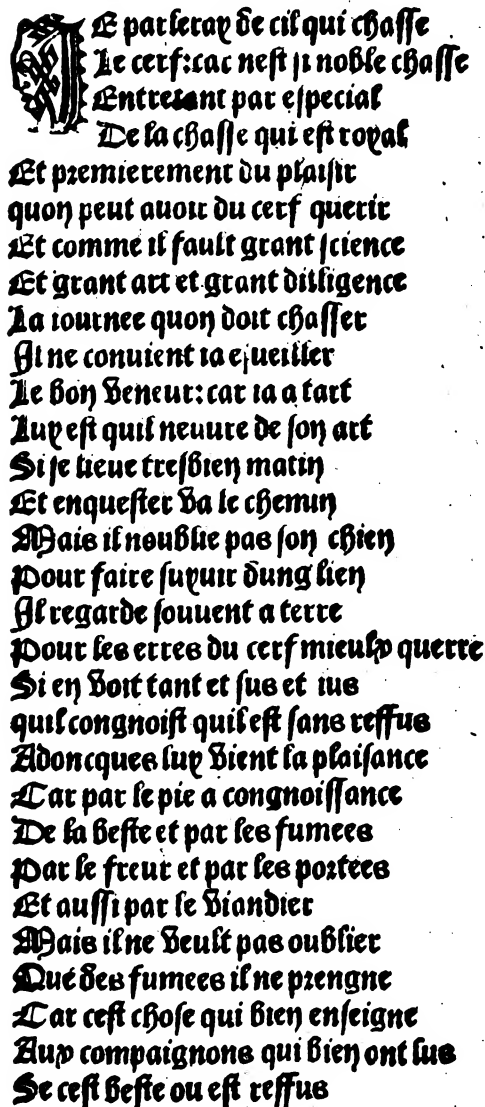 JE parleray de cil qui chasse
Le cerf:car nest si noble chasse
Entretant par especial
De la chasse qui est royal
Et premierement du plaisir
quon peut auoir du cerf querir
Et comme il fault grant science
Et grant art et grant dilligence
La iournee quon doit chasser
Il ne conuient ia esueiller
Le bon veneur:car ia a tart
Luy est quil neuure de son art
Si se lieue tresbien matin
Et enquester va le chemin
Mais il noublie pas son chien
Pour faire suyuir dung lien
Il regarde souuent a terre
Pour les erres du cerf mieulx querre
Si en voit tant et sus et ius
quil congnoist quil est sans reffus
Adoncques luy vient la plaisance
Car par le pie a congnoissance
De la beste et par les fumees
Par le freur et par les portees
Et aussi par le viandier
Mais il ne veult pas oublier
Que des fumees il ne prengne
Car cest chose qui bien enseigne
Aux compaignons qui bien ont lus
Se cest beste ou est reffus